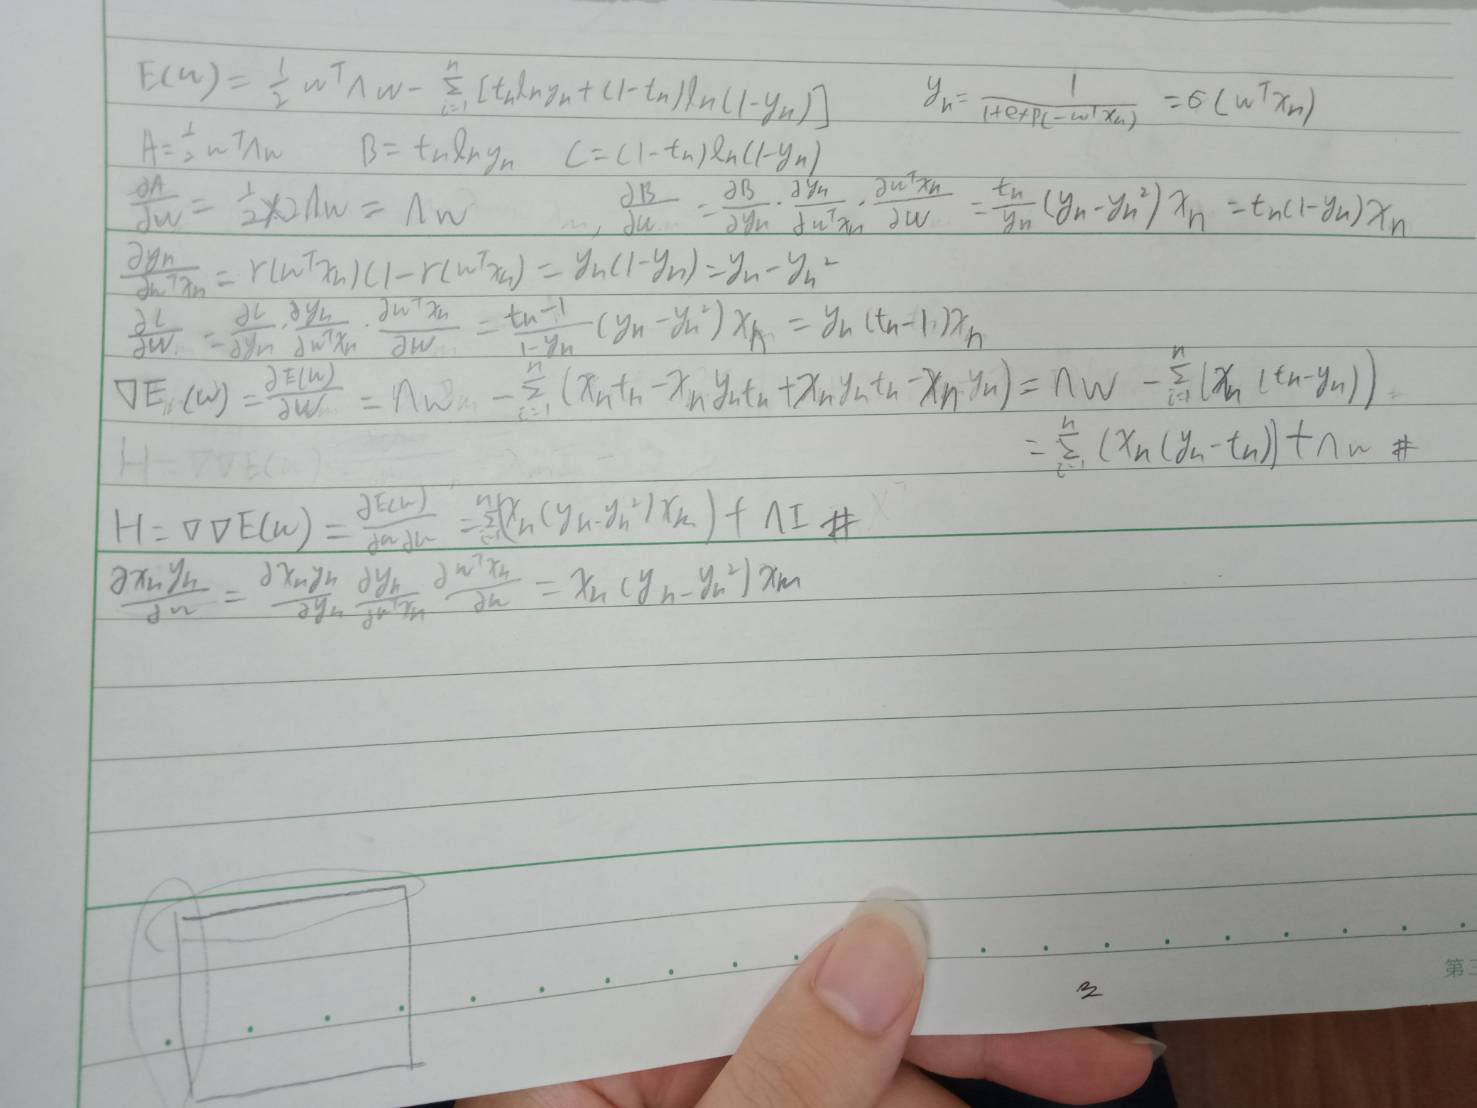 E(w) = 1/2 w^T Λ w - Σ_{i=1}^{n} [t_n ln y_n + (1-t_n) ln (1-y_n)]    y_n = 1/(1+exp(-w^T x_n)) = σ(w^T x_n)
A = 1/2 w^T Λ w    B = t_n ln y_n    C = (1-t_n) ln (1-y_n)
∂A/∂w = 1/2 × 2 Λw = Λw    ∂B/∂w = ∂B/∂y_n · ∂y_n/∂w^T x_n · ∂w^T x_n/∂w = t_n/y_n (y_n - y_n^2) x_n = t_n (1-y_n) x_n
∂y_n/∂w^T x_n = r(w^T x_n)(1-r(w^T x_n) = y_n (1-y_n) = y_n - y_n^2
∂C/∂w = ∂C/∂y_n · ∂y_n/∂w^T x_n · ∂w^T x_n/∂w = t_n-1/1-y_n (y_n - y_n^2) x_n = y_n (t_n-1) x_n
∇E(w) = ∂E(w)/∂w = Λw - Σ_{i=1}^{n} (x_n t_n - x_n y_n t_n + x_n y_n t_n - x_n y_n) = Λw - Σ_{i=1}^{n} (x_n (t_n - y_n))
= Σ_{i=1}^{n} (x_n (y_n - t_n)) + Λw #
H = ∇∇E(w) = ∂E(w)/∂w∂w = Σ_{i=1}^{n} (x_n (y_n - y_n^2) x_m) + ΛI #
∂x_n y_n/∂w = ∂x_n y_n/∂y_n ∂y_n/∂w^T x_n ∂w^T x_n/∂w = x_n (y_n - y_n^2) x_m
第